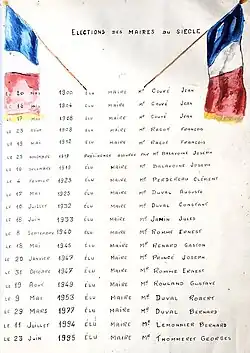 ELECTIONS DES MAIRES DU SIÈCLE
LE 20 MAI 1900 ÉLU MAIRE Mr COURÉ JEAN
LE MAI 1904 ÉLU MAIRE Mr COURÉ JEAN
LE 17 MAI 1908 ÉLU MAIRE Mr COURÉ JEAN
LE JUIN 1908 ÉLU MAIRE Mr FRANÇOIS
LE 19 MAI 1912 ÉLU MAIRE Mr FRANÇOIS
LE NOVEMBRE PAR Mr BALAVOINE JOSEPH
LE 10 DÉCEMBRE 1919 ÉLU MAIRE Mr BALAVOINE JOSEPH
LE 4 FÉVRIER 1923 ÉLU MAIRE Mr PERDEREAU CLÉMENT
LE 17 MAI 1925 ÉLU MAIRE Mr DUVAL AUGUSTE
LE 10 JUILLET 1932 ÉLU MAIRE Mr DUVAL CONSTANT
LE 18 JUIN 1933 ÉLU MAIRE Mr JAMIN JULES
LE 8 SEPTEMBRE 1940 ÉLU MAIRE Mr ROMME ERNEST
LE 18 MAI 1945 ÉLU MAIRE Mr RENARD GASTON
LE 20 JANVIER 1947 ÉLU MAIRE Mr PRINCÉ JOSEPH
LE 31 OCTOBRE 1947 ÉLU MAIRE Mr ROMME ERNEST
LE 19 AOUT 1949 ÉLU MAIRE Mr ROULAND GUSTAVE
LE 9 MAI 1953 ÉLU MAIRE Mr DUVAL ROBERT
LE 29 MARS 1977 ÉLU MAIRE Mr DUVAL BERNARD
LE 11 JUILLET 1994 ÉLU MAIRE Mr LEMONNIER BERNARD
LE 23 JUIN 1995 ÉLU MAIRE Mr THOMMERET GEORGES